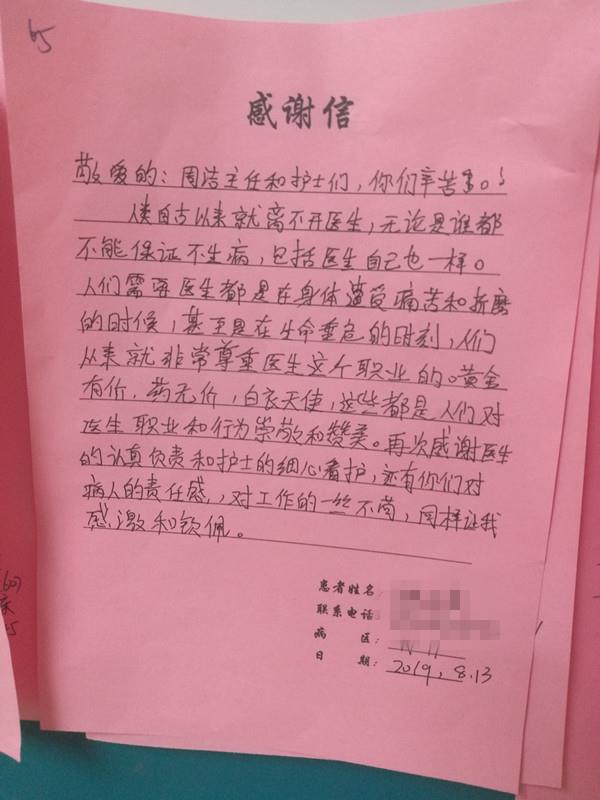 65
感谢信
敬爱的:周洁主任和护士们,你们辛苦了。!
人类自古以来就离不开医生,无论是谁都
不能保证不生病,包括医生自己也一样。
人们需要医生都是在身体遭受痛苦和折磨
的时候,甚至是在生命垂危的时刻,人们
从来就非常尊重医生这个职业的。黄金
有价,药无价,白衣天使,这些都是人们对
医生职业和行为崇敬和赞美。再次感谢医生
的认真负责和护士的细心看护,还有你们对
病人的责任感,对工作的一丝不苟,同样让我
感激和钦佩。
患者姓名:
联系电话:
病 区:
日 期:2019,8.13